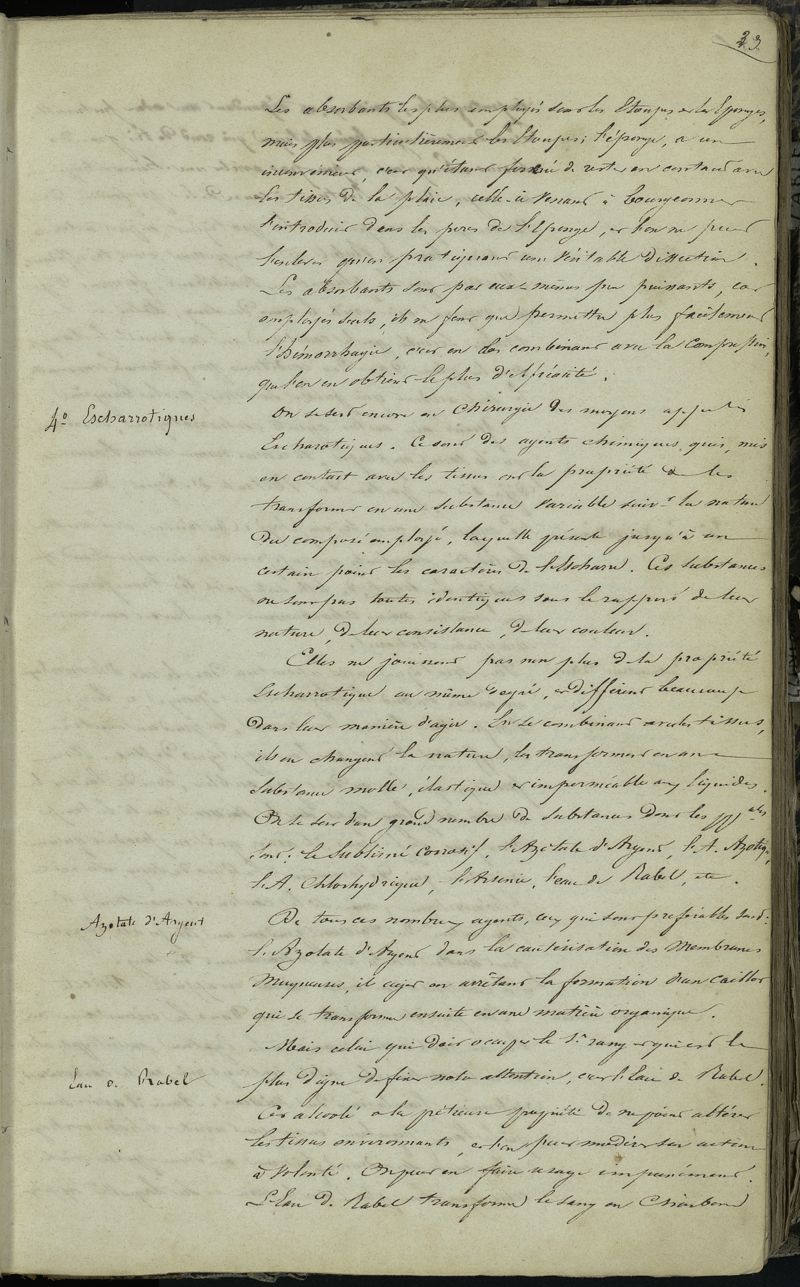 23
Les absorbants les plus employés sont les Etoupes et les Eponges,
mais plus particulièrement les Etoupes; l'éponge, a un
inconvénient, c'est qu'étant forcée de rester en contact avec
les tissus de la plaie, celle-ci venant à bourgeonner
s'introduit dans les pores de l'Eponge, et l'on ne peut
l'enlever qu'en pratiquant une véritable dissection.
Les absorbants sont par eux-mêmes peu puissants, car
employés seuls, ils ne font que permettre plus facilement
l'hémorrhagie, c'est en les combinant avec la Compression,
que l'on en obtient le plus d'efficacité.
4° Escharrotiques
On se sert encore en Chirurgie des moyens appelés
Escharotiques. Ce sont des agents chimiques, qui, mis
en contact avec les tissus ont la propriété de les
transformer en une substance variable suivt la nature
du composé employé, laquelle présente jusqu'à un
certain point les caractères de l'Escharre. Ces substances
ne sont pas toutes identiques sous le rapport de leur
nature, de leur consistance, de leur couleur.
Elles ne jouissent pas non plus de la propriété
Escharrotique au même degré, et diffèrent beaucoup
dans leur manière d'agir. En se combinant avec les tissus,
ils en changent la nature, les transforment en une
substance molle, élastique et imperméable aux liquides.
On se sert d'un grand nombre de substances dont les ppales
sont: le Sublimé Corrosif, l'Azotate d'Argent, l'A. Azotiq,
l'A. Chlorhydrique, l'Arsenic, l'eau de Rabel, etc.
Azotate d'Argent
De tous ces nombreux agents, ceux qui sont préférables sont:
l'Azotate d'Argent dans la cautérisation des Membranes
Muqueuses, il agit en arrêtant la formation d'un caillot
qui se transforme ensuite en une matière organique.
Eau de Rabel
Mais celui qui doit occuper le 1er rang et qui est le
plus digne de fixer notre attention, c'est l'Eau de Rabel.
Cet alcoolé a la précieuse propriété de ne point altérer
les tissus environnants, et l'on peut modérer son action
à volonté. On peut en faire usage impunément.
L'Eau de Rabel transforme le sang en Charbon